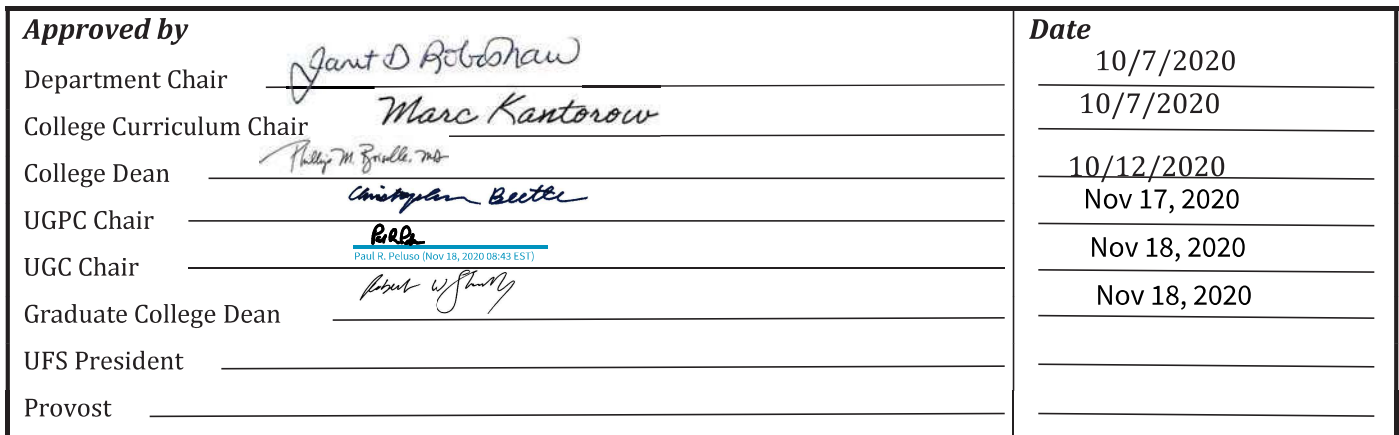 Approved by Date
Department Chair Janet D Robishaw 10/7/2020
College Curriculum Chair Marc Kantorow 10/7/2020
College Dean Phillip M. MD 10/12/2020
UGPC Chair Christopher Beetle Nov 17, 2020
UGC Chair Nov 18, 2020
Paul R. Peluso (Nov 18, 2020 08:43 EST)
Graduate College Dean Robert W Nov 18, 2020
UFS President
Provost